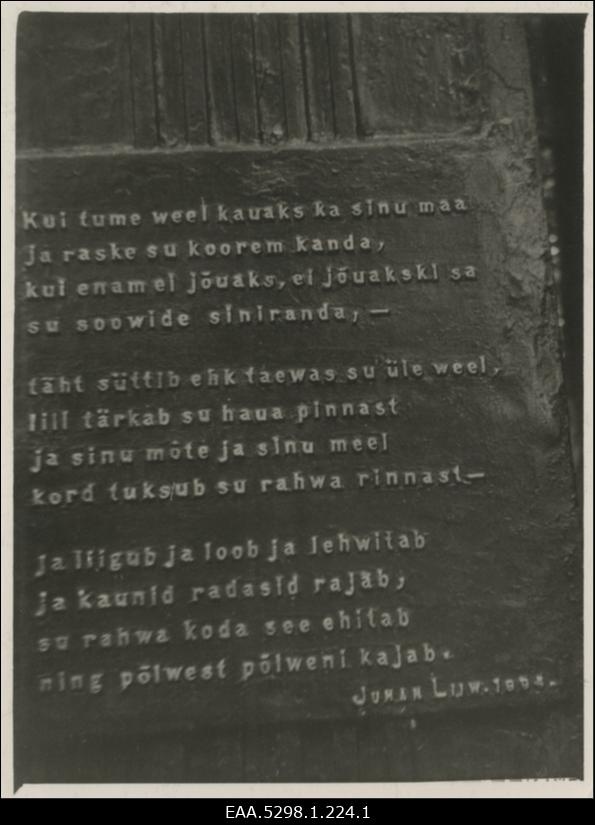 Kui tume weel kauaks ka sinu maa
ja raske su koorem kanda,
kui enam ei jõuaks, ei jõuakski sa
su soowide siniranda, —
täht süttib ehk taewas su üle weel,
lill tärkab su haua pinnast
ja sinu mõte ja sinu meel
kord tuksub su rahwa rinnast —
ja liigub ja loob ja lehwitab
ja kaunid radasid rajab,
su rahwa koda see ehitab
ning põlwest põlweni kajab.
JUHAN LIIW.
EAA.5298.1.224.1